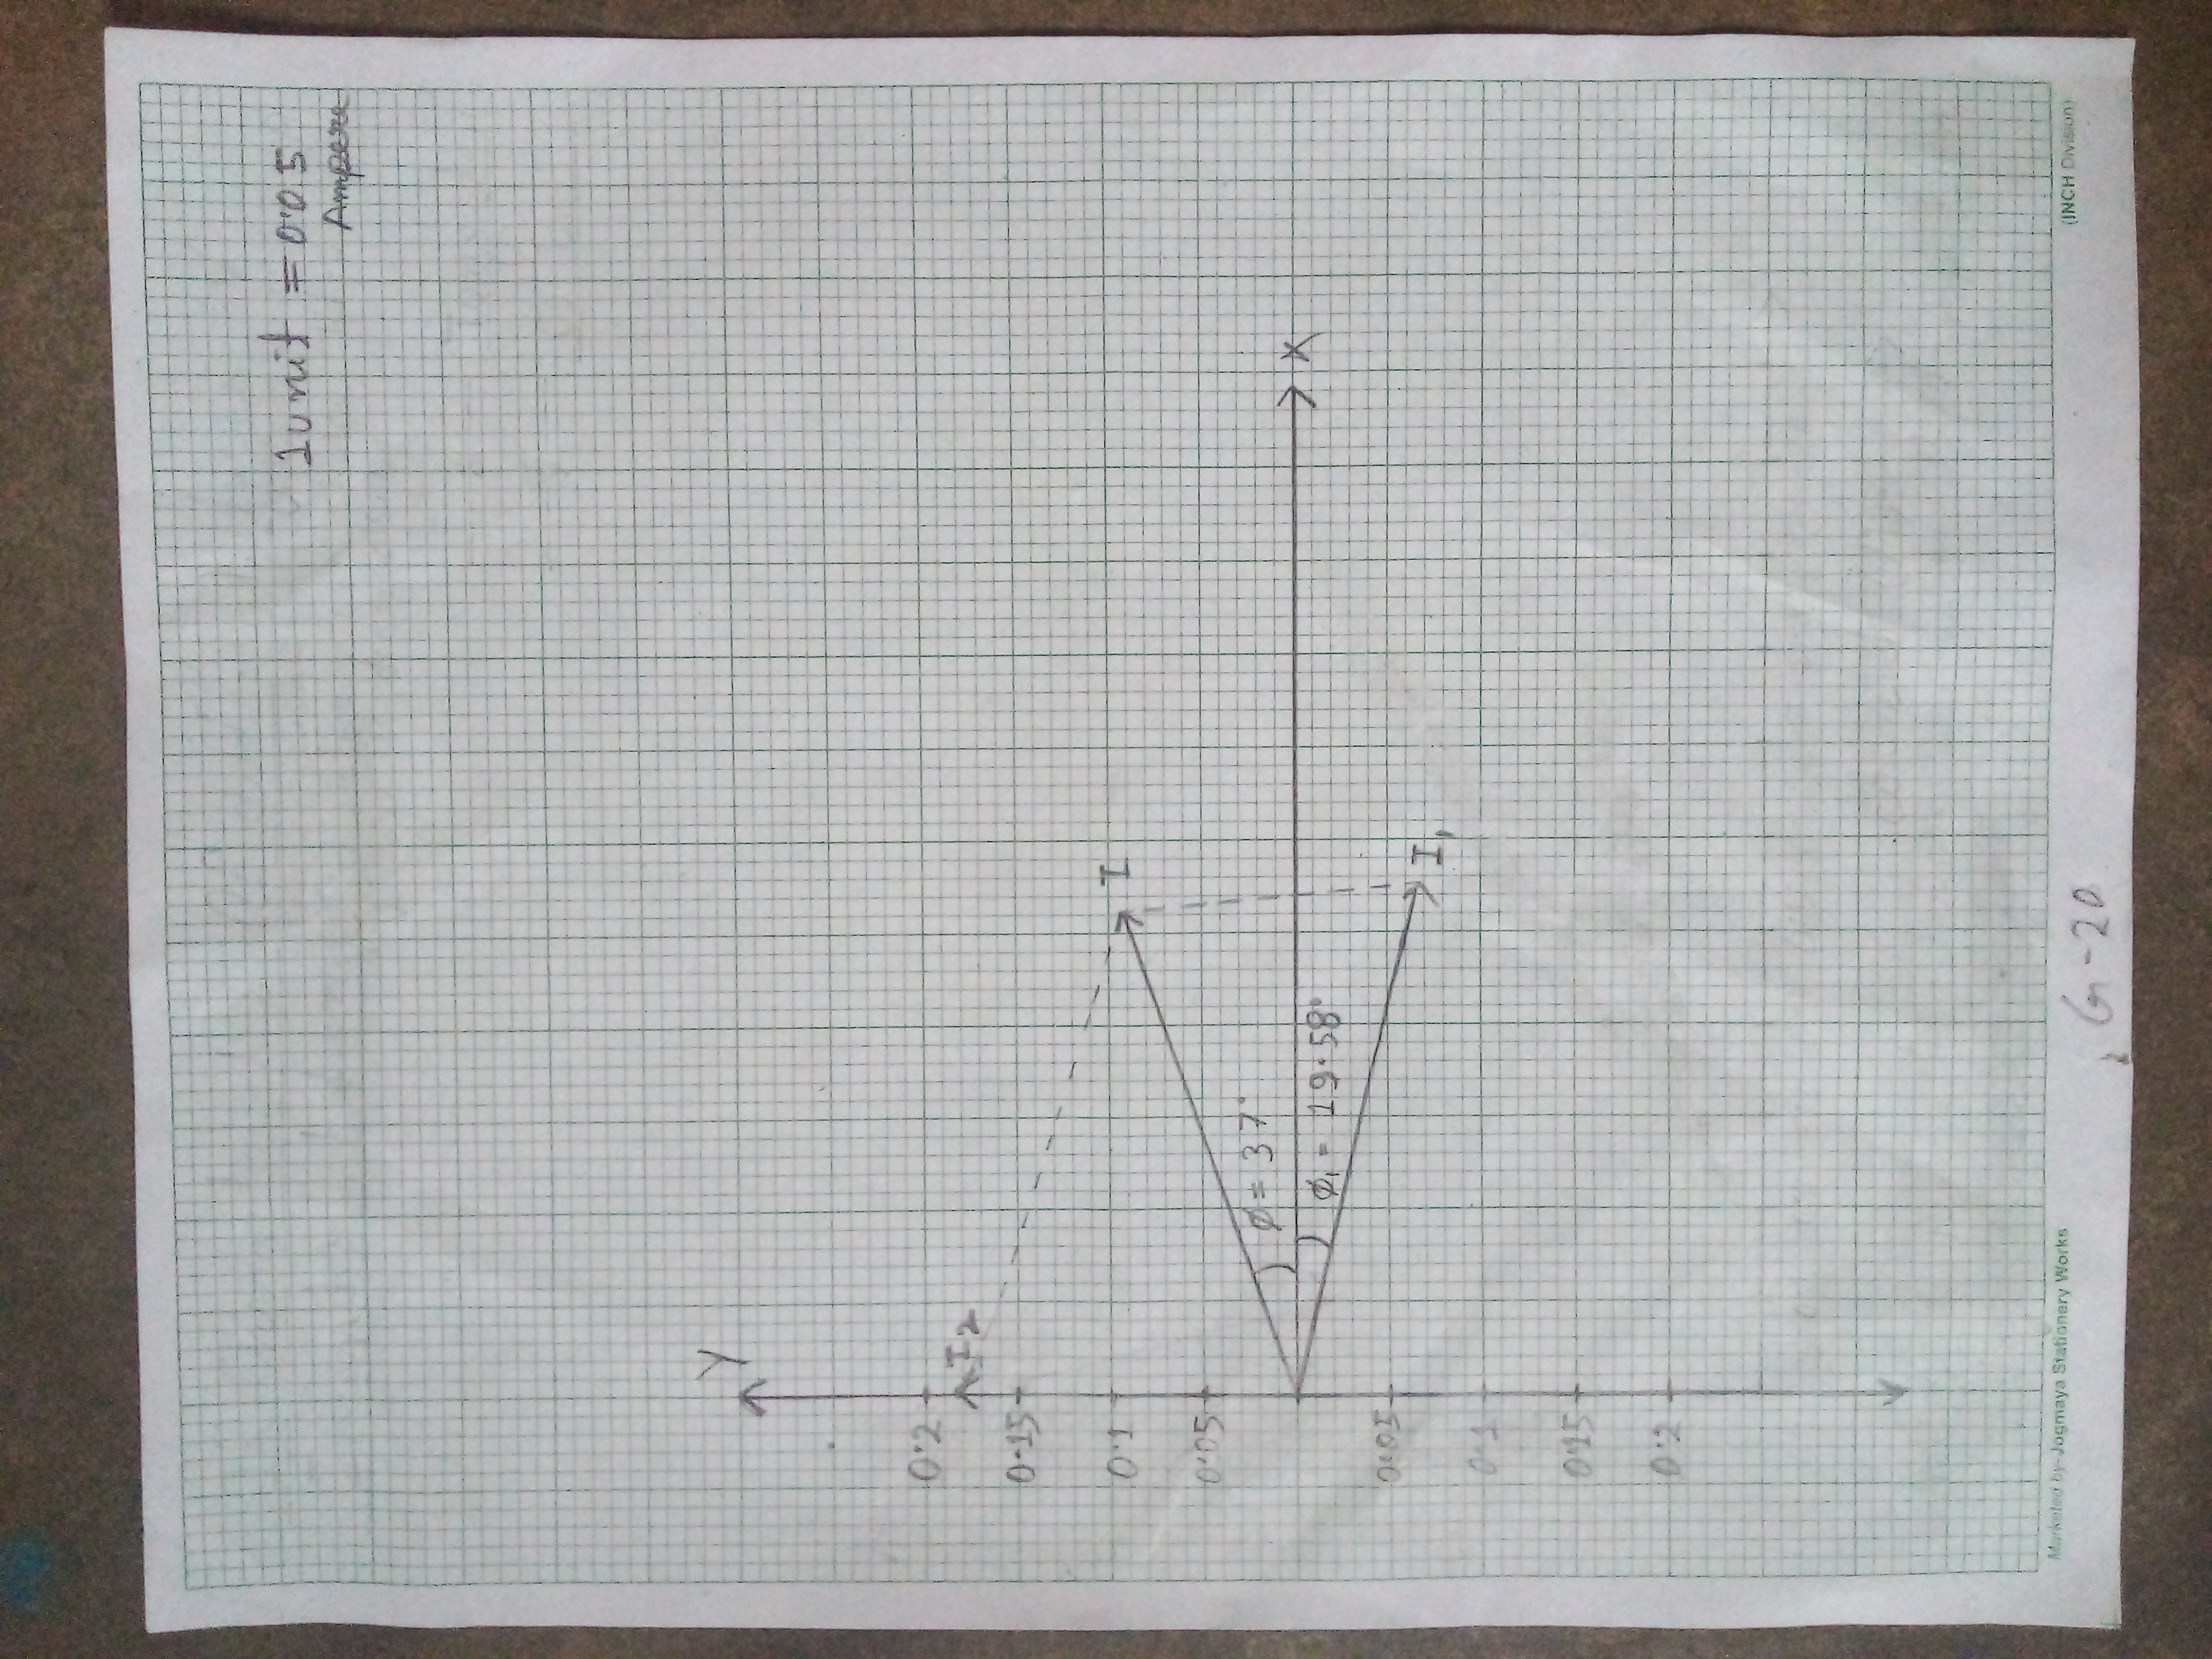 1 unit = 0.05
Ampere
Y
0.2
I2
0.15
0.1
I
0.05
φ = 37°
X
φ1 = 19.58°
0.05
I1
0.1
0.15
0.2
Marketed by- Jogmaya Stationery Works
(INCH Division)
G-20